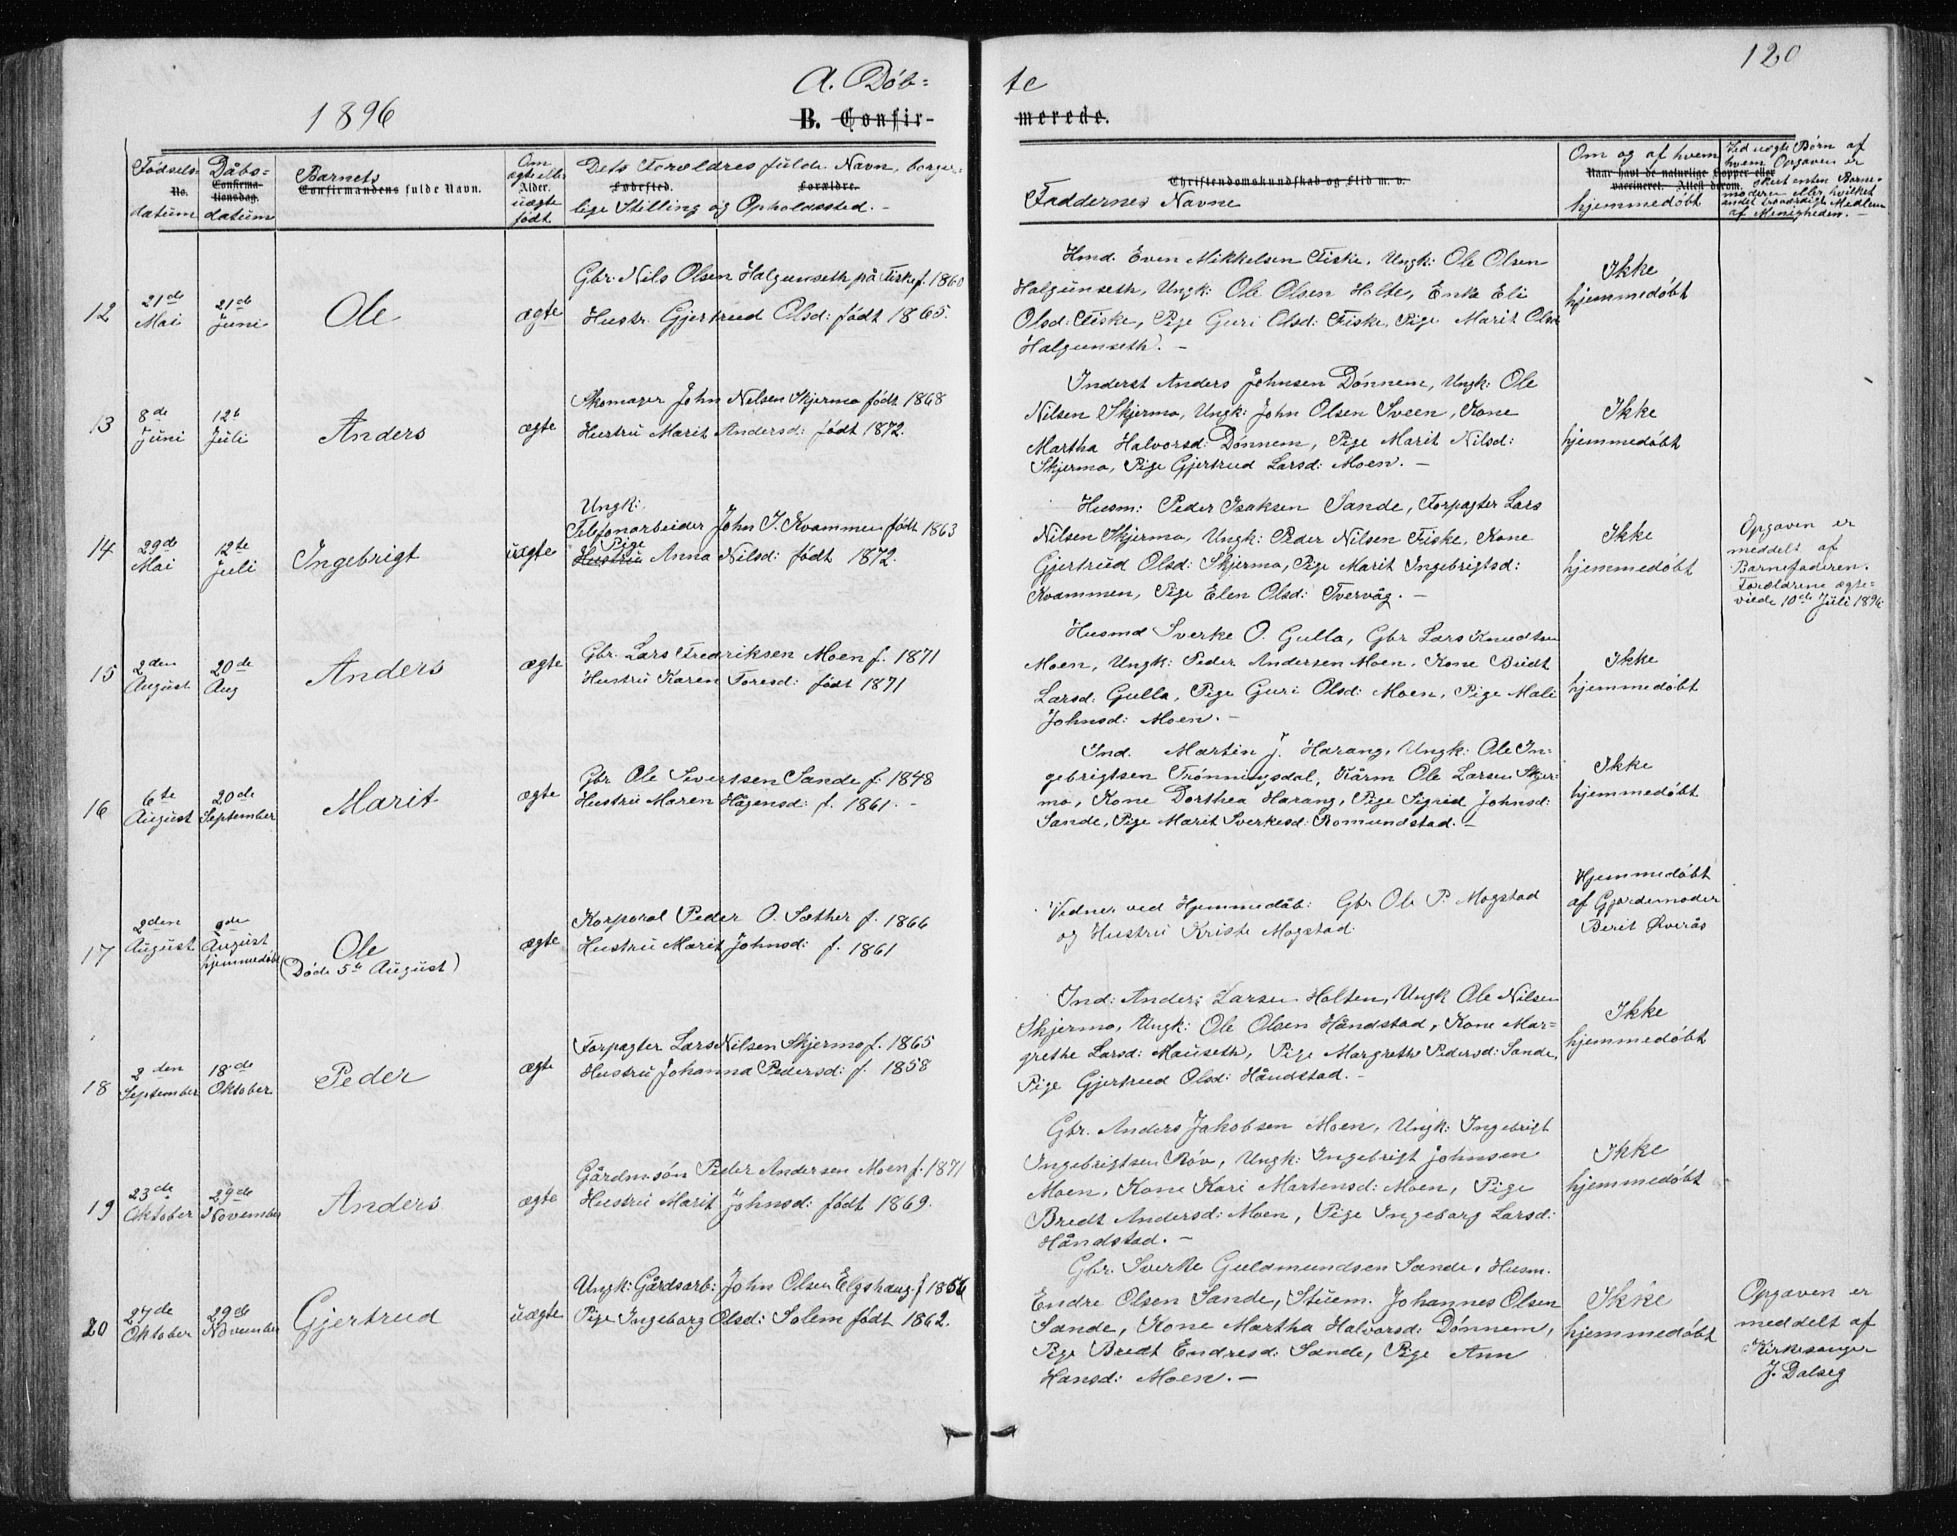 120
A. Døb=
te
1896
B. Confir-
merede.
Fødsels=
No.
datum
Dåbs=
Confirma-
tionsdag.
datum
Barnets
Confirmandens fulde Navn.
Om
ægte eller
Alder.
uægte
født
Dets Forældres fulde Navn, borger=
Fødested. Forældre.
lige Stilling og Opholdssted. -
Christendomskundskab og Flid m. v.
Faddernes Navne
Om og af hvem
Naar havt de naturlige Kopper eller
vaccineret. Attest derom.
hjemmedøbt
Ved uægte Børn af
hvem Opgaven er
skeet enten Barne=
moderen eller hvilket
andet troværdigt Medlem
af Menigheden. -
12
21de
Mai
21de
Juni
Ole
ægte
Gbr. Nils Olsen Halgunseth på Fiske f. 1860
Hustr. Gjertrud Olsd: født 1865.
Hmd. Even Mikkelsen Fiske, Ungk: Ole Olsen
Halgunseth, Ungk: Ole Olsen Holte, Enke Eli
Olsd: Fiske, Pige Guri Olsd: Fiske, Pige Marit Olsd
Halgunseth. -
Ikke
hjemmedøbt
13
8de
Juni
12t
Juli
Anders
ægte
Skomager John Nilsen Skjermo født 1868
Hustru Marit Andersd: født 1872.
Inderst Anders Johnsen Dønnem, Ungk: Ole
Nilsen Skjermo, Ungk: John Olsen Sveen, Kone
Martha Halvorsd: Dønnem, Pige Marit Nilsd:
Skjermo, Pige Gjertrud Larsd: Moen. -
Ikke
hjemmedøbt
14
29de
Mai
12te
Juli
Ingebrigt
uægte
Ungk:
Telefonarbeider John I. Kvammen født 1863
Pige
Hustru Anna Nilsd: født 1872.
Husm: Peder Isaksen Sande, Forpagter Lars
Nilsen Skjermo, Ungk: Peder Nilsen Fiske, Kone
Gjertrud Olsd: Skjermo, Pige Marit Ingebrigtsd:
Kvammen, Pige Elen Olsd: Tvervåg. -
Ikke
hjemmedøbt
Opgaven er
meddelt af
Barnefaderen.
Forældrene ægte-
viede 10de Juli 1896
15
2den
August
20de
Aug
Anders
ægte
Gbr. Lars Fredriksen Moen f. 1871
Hustru Karen Toresd: født 1871
Husmd Sverke O. Gulla, Gbr Lars Knudtsen
Moen, Ungk: Peder Andersen Moen, Kone Bredt
Larsd: Gulla, Pige Guri Olsd: Moen, Pige Mali
Johnsd: Moen. -
Ikke
hjemmedøbt
16
6te
August
20de
September
Marit
ægte
Gbr Ole Sivertsen Sande f. 1848
Hustru Maren Hågensd: f. 1861. -
Ind. Martin J. Harang, Ungk: Ole In-
gebrigtsen Trønningsdal, Kårm Ole Larsen Skjer-
mo, Kone Dorthea Harang, Pige Sigrid Johnsd:
Sande, Pige Marit Sverkesd: Romundstad. -
Ikke
hjemmedøbt
17
2den
August
2de
August
hjemmedøbt
Ole
(Døde 5te August)
ægte
Korporal Peder O. Sæther f. 1866
Hustru Marit Johnsd: f. 1861
Vidner ved Hjemmedåb: Gbr Ole P. Mogstad
og Hustru Kristi Mogstad.
Hjemmedøbt
af Gjordemoder
Berit Øverås
18
2den
September
18de
Oktober
Peder
ægte
Forpagter Lars Nilsen Skjermo f. 1865
Hustru Johanna Pedersd: f. 1858
Ind: Anders Larsen Holten, Ungk Ole Nilsen
Skjermo, Ungk: Ole Olsen Håndstad, Kone Mar=
grethe Larsd: Mauseth, Pige Margrethe Pedersd: Sande,
Pige Gjertrud Olsd: Håndstad. -
Ikke
hjemmedøbt
19
23de
Oktober
29de
November
Anders
ægte
Gårdm.søn Peder Andersen Moen f. 1871
Hustru Marit Johnsd: født 1869.
Gbr. Anders Jakobsen Moen, Ungk: Ingebrigt
Ingebrigtsen Røv, Ungk: Ingebrigt Johnsen
Moen, Kone Kari Martensd: Moen, Pige
Bredt Andersd: Moen, Pige Ingeborg Larsd:
Håndstad. -
Ikke
hjemmedøbt
20
27de
Oktober
29de
November
Gjertrud
uægte
Ungk: Gårdsarb: John Olsen Elgshaug f 1856
Pige Ingeborg Olsd: Solem født 1862.
Gbr. Sverke Guldmundsen Sande, Husm.
Endre Olsen Sande, Stuem. Johannes Olsen
Sande, Kone Martha Halvorsd: Dønnem,
Pige Bredt Endresd: Sande, Pige Ann
Hansd: Moen. -
Ikke
hjemmedøbt
Opgaven er
meddelt af
Kirkesanger
J. Dalseg